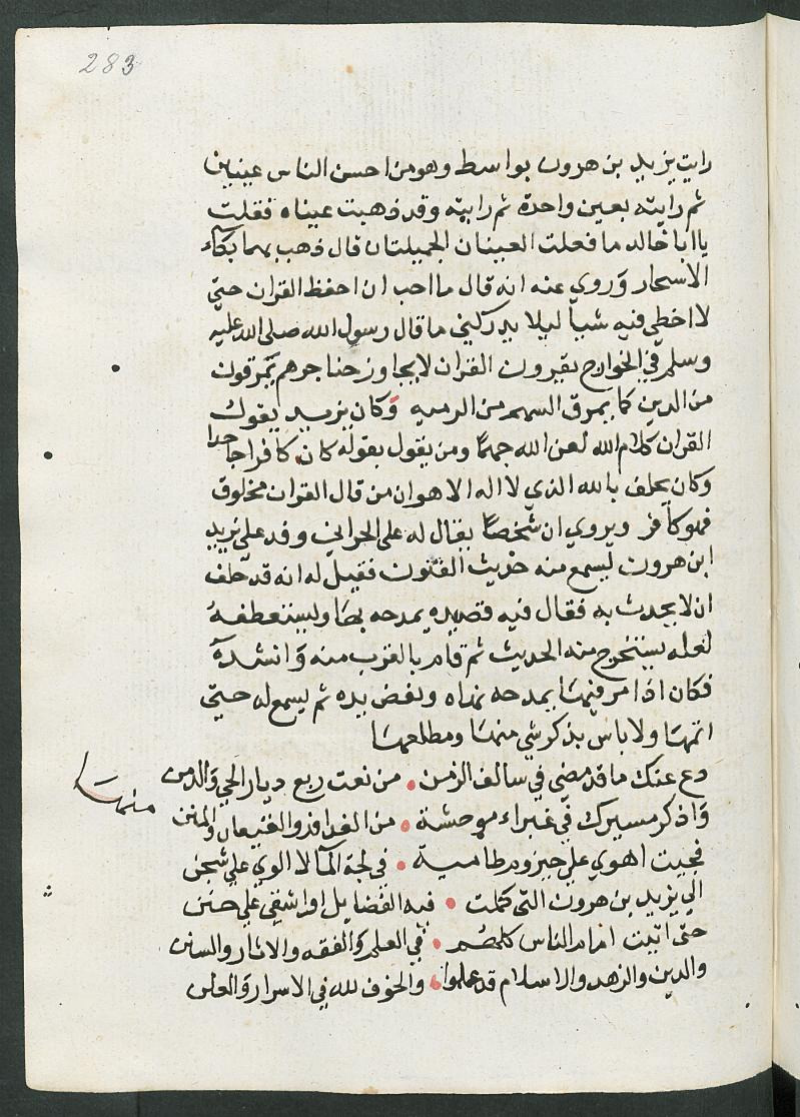 283
رايت يزيد بن هرون بواسط وهو من احسن الناس عينين
ثم رايته بعين واحدة ثم رايته وقد ذهبت عيناه فقلت
يا ابا خالد ما فعلت العينان الجميلتان قال ذهب بهما بكاء
الاسحار وروي عنه انه قال ما احب ان احفظ القران حتى
لا اخطي فيه شيا ليلا يدركني ما قال رسول الله صلى الله عليه
وسلم في الخوارج يقرون القران لا يجاوز حناجرهم يمرقون
من الدين كما يمرق السهم من الرميه وكان يزيد يقول
القران كلام الله لعن الله جهما ومن يقول بقوله كان كافرا جاحدا
وكان يحلف بالله الذي لا اله الا هو ان من قال القران مخلوق
فهو كافر ويروي ان شخصا يقال له علي الحراني وفد على يزيد
ابن هرون ليسمع منه حديث الفتون فقيل له انه قد حلف
ان لا يحدث به فقال فيه قصيده يمدحه بها ويستعطفه
لعله يستخرج منه الحديث ثم قام بالقرب منه وانشده
فكان اذا مر فيها بمدحه نهاه ونفض يده ثم يسمع له حتى
اتمها ولا باس بذكر شي منها ومطلعها
دع عنك ما قد مضى في سالف الزمن • من نعت ربع ديار الحي والدمن
منها
واذكر مسيرك في غبراء موحشة • من الفدافد والقيعان والمنن
فجيت اهوي على حيزوم طامية • في لجة الماء لا الوي على شجن
الى يزيد بن هرون التي كملت • فيه الفضايل او اشفى على ختن
حتى اتيت امام الناس كلهم • في العلم والفقه والاثار والسنن
والدين والزهد والاسلام قد علموا • والخوف لله في الاسرار والعلن